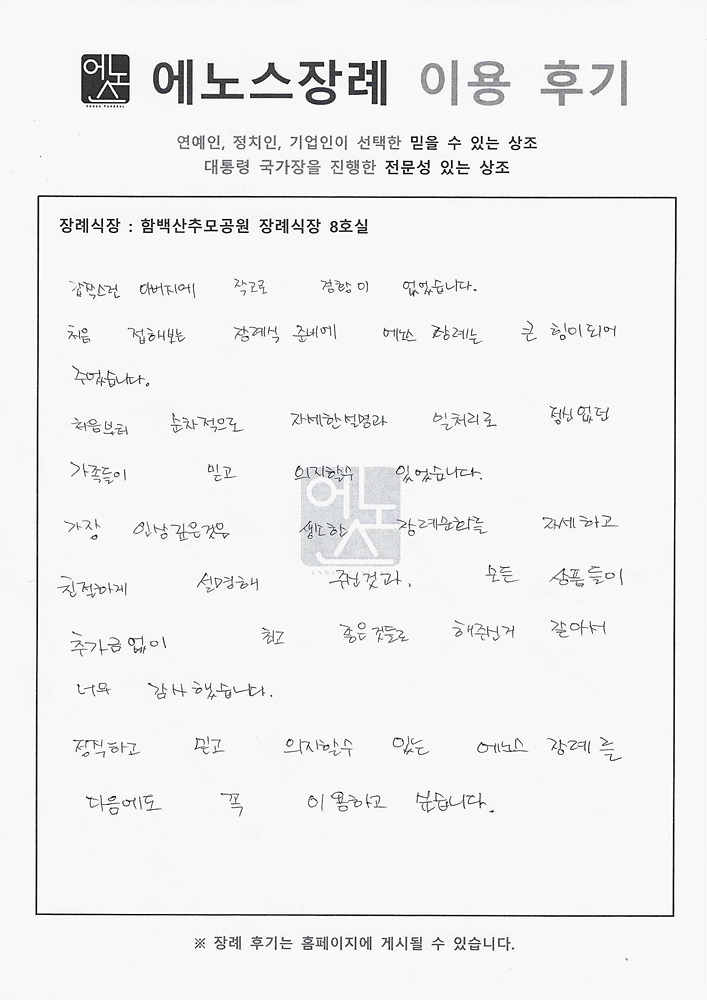 에노스
ENOSH FUNERAL
에노스장례 이용 후기
연예인, 정치인, 기업인이 선택한 믿을 수 있는 상조
대통령 국가장을 진행한 전문성 있는 상조
장례식장 : 함백산추모공원 장례식장 8호실
갑작스런 아버지에 작고로 경황이 없었습니다.
처음 접해보는 장례식 준비에 에노스 장례는 큰 힘이되어
주었습니다.
처음부터 순차적으로 자세한설명과 일처리로 정신없던
가족들이 믿고 의지할수 있었습니다.
가장 인상깊은것은 생소한 장례문화를 자세하고
친절하게 설명해 주신것과, 모든 상품들이
추가금없이 최고 좋은것들로 해주신거 같아서
너무 감사했습니다.
정직하고 믿고 의지할수 있는 에노스 장례를
다음에도 꼭 이용하고 싶습니다.
※ 장례 후기는 홈페이지에 게시될 수 있습니다.